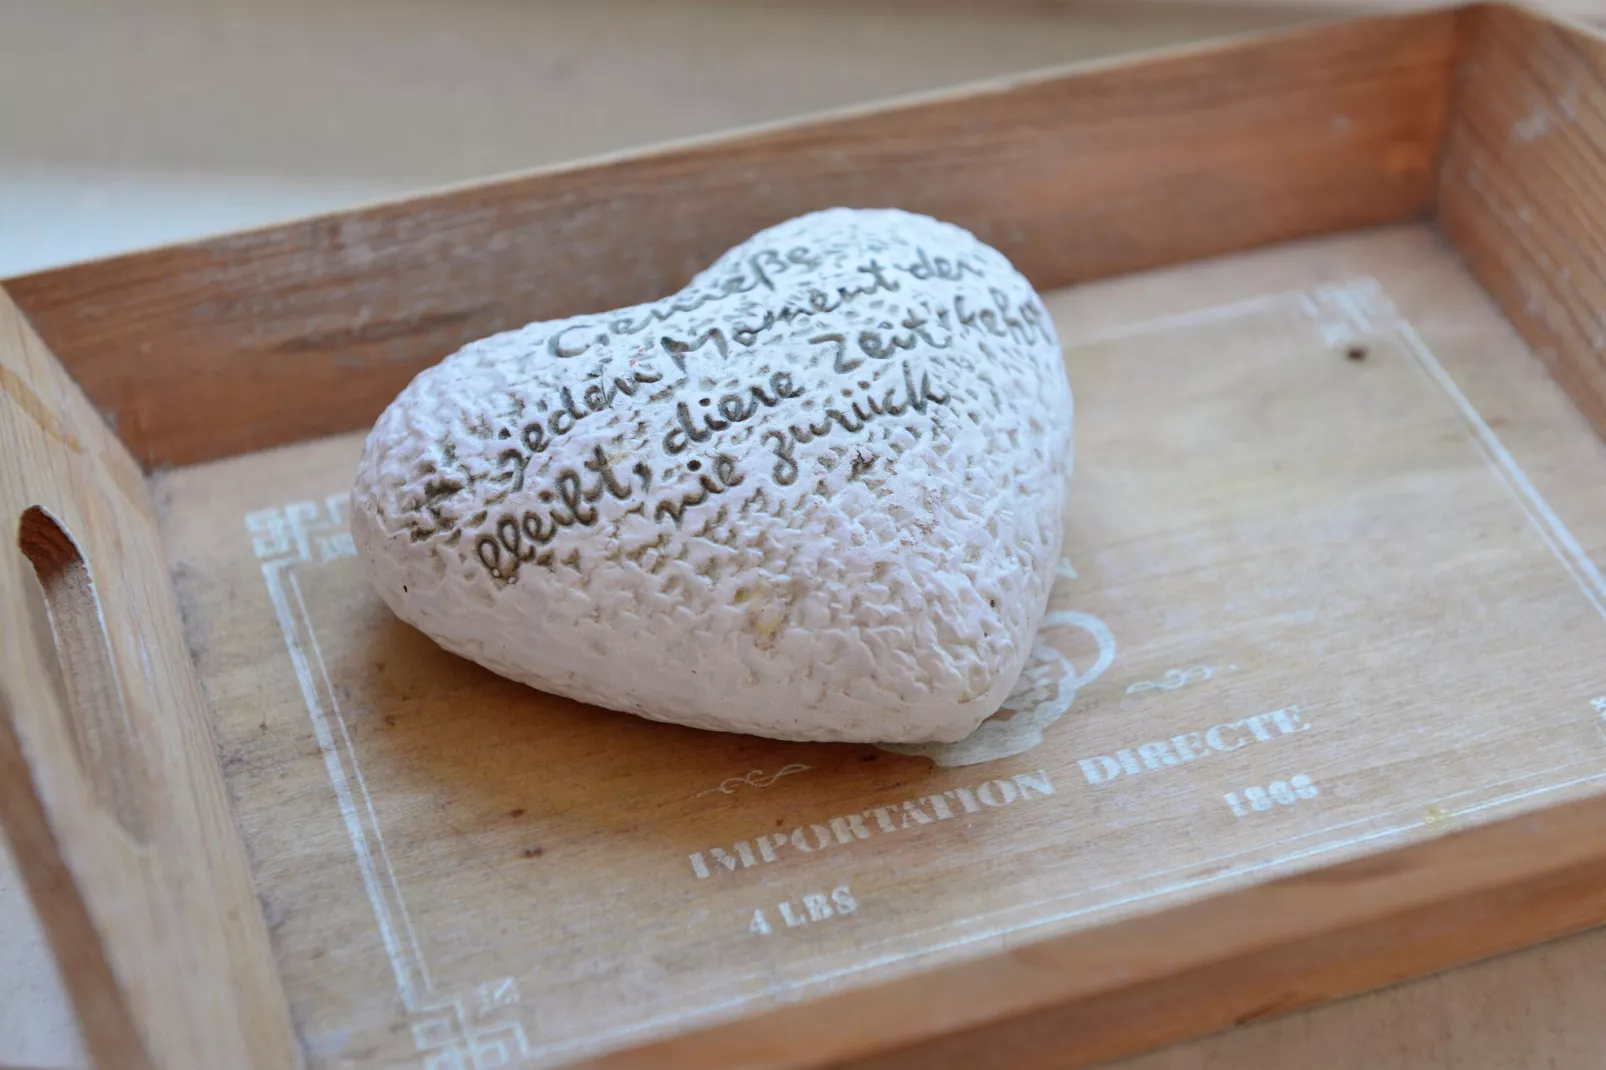 Genieße
jeden Moment der
bleibt, diese Zeit kehrt
nie zurück
IMPORTATION DIRECTE
4 LBS
1866